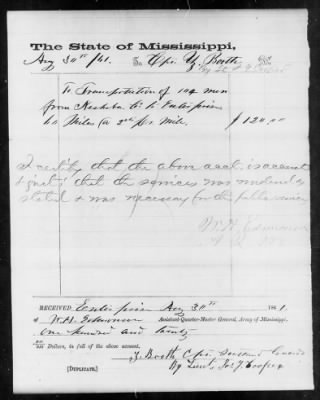 The State of Mississippi,
Aug 30th /61. To Cpt. Z. Booth Dr.
To Transportation of 104 men
from Neshoba Co to Enterprise
60 Miles @ 2cts pr. Mile. $ 124.00
I certify that the above acct. is accurate
& just; that the services was rendered as
stated & was necessary for the public service
W. H.
RECEIVED Enterprise Aug 30th 1861.
of W. H. Assistant-Quarter-Master General, Army of Mississippi,
One hundred and twenty
Dollars, in full of the above account.
Z. Booth Cpt.
[DUPLICATE.] By Lieut. Jos. J. Cooper